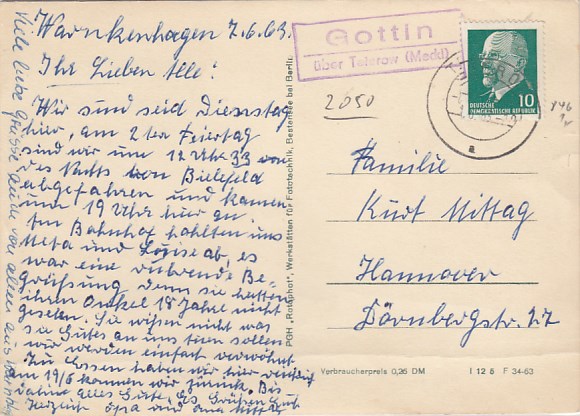 Warnkenhagen 7.6.63.
Ihr Lieben Alle!
Wir sind seid Dienstag
hier, am 2ter Feiertag
sind wir um 12 Uhr 33 von
des Nachts von Bielefeld
abgefahren und kamen
um 19 Uhr hier an.
Am Bahnhof hohlten uns
Meta und Louise ab, es
war eine rührende Be-
grüßung, denn sie hatten
ihren Onkel 18 Jahre nicht
gesehen. Sie wissen nicht was
sie Gutes an uns tun sollen
wir werden einfach verwöhnt
Zu Essen haben wir hier reichlich
am 19/6 kommen wir zurück. Bis
dahin alles Gute. Es Grüßen Euch
Herzlich Opa und Oma Mittag
Viele liebe Grüsse auch von allen aus
Gottin
über Teterow (Meckl)
DEUTSCHE
DEMOKRATISCHE REPUBLIK
10
2050
Familie
Kurt Mittag
Hannover
Dörnbergstr. 27
PGH „Rotophot", Werkstätten für Fototechnik, Bestensee bei Berlin
Verbraucherpreis 0,26 DM
I 12 6 F 34-63